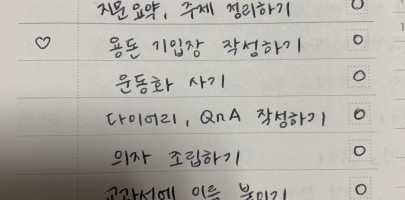 지문 요약, 주제 정리하기
♡ 용돈 기입장 작성하기
운동화 사기
다이어리, QnA 작성하기
의자 조립하기
교과서에 이름 붙이기